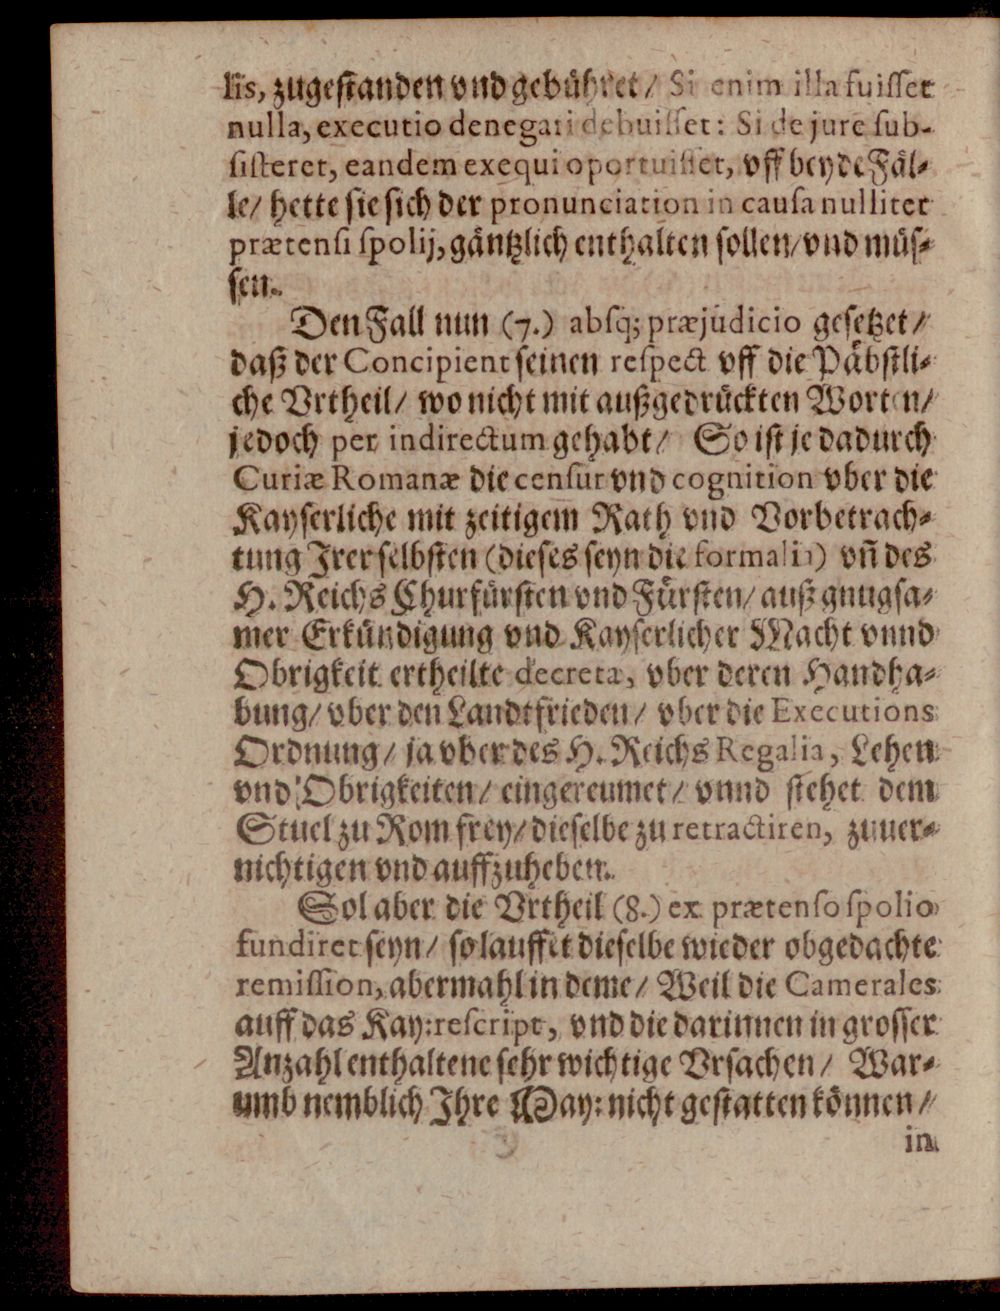 lis, zugestanden vnd gebühret / Si enim illa fuisset
nulla, executio denegari debuisset: Si de jure sub-
sisteret, eandem exequi oportuisset, vff beyde Fäl-
le / hette sie sich der pronunciation in causa nulliter
prætensi spolij, gäntzlich enthalten sollen / vnd müs-
sen.
Den Fall nun (7.) absq; præjudicio gesetzet /
daß der Concipient seinen respect vff die Päbstli-
che Vrtheil / wo nicht mit außgedrückten Worten /
jedoch per indirectum gehabt / So ist je dadurch
Curiæ Romanæ die censur vnd cognition vber die
Kayserliche mit zeitigem Rath vnd Vorbetrach-
tung Irer selbsten (dieses seyn die formalia) vñ des
H. Reichs Churfürsten vnd Fürsten / auß gnugsa-
mer Erkündigung vnd Kayserlicher Macht vnnd
Obrigkeit ertheilte decreta, vber deren Handha-
bung / vber den Landtfrieden / vber die Executions
Ordnung / ja vber des H. Reichs Regalia, Lehen
vnd Obrigkeiten / eingereumet / vnnd stehet dem
Stuel zu Rom frey / dieselbe zu retractiren, zuuer-
nichtigen vnd auffzuheben.
Sol aber die Vrtheil (8.) ex prætenso spolio
fundiret seyn / so lauffet dieselbe wieder obgedachte
remission, abermahl in deme / Weil die Camerales
auff das Kay: rescript, vnd die darinnen in grosser
Anzahl enthaltene sehr wichtige Vrsachen / War-
umb nemblich Ihre May: nicht gestatten können /
in